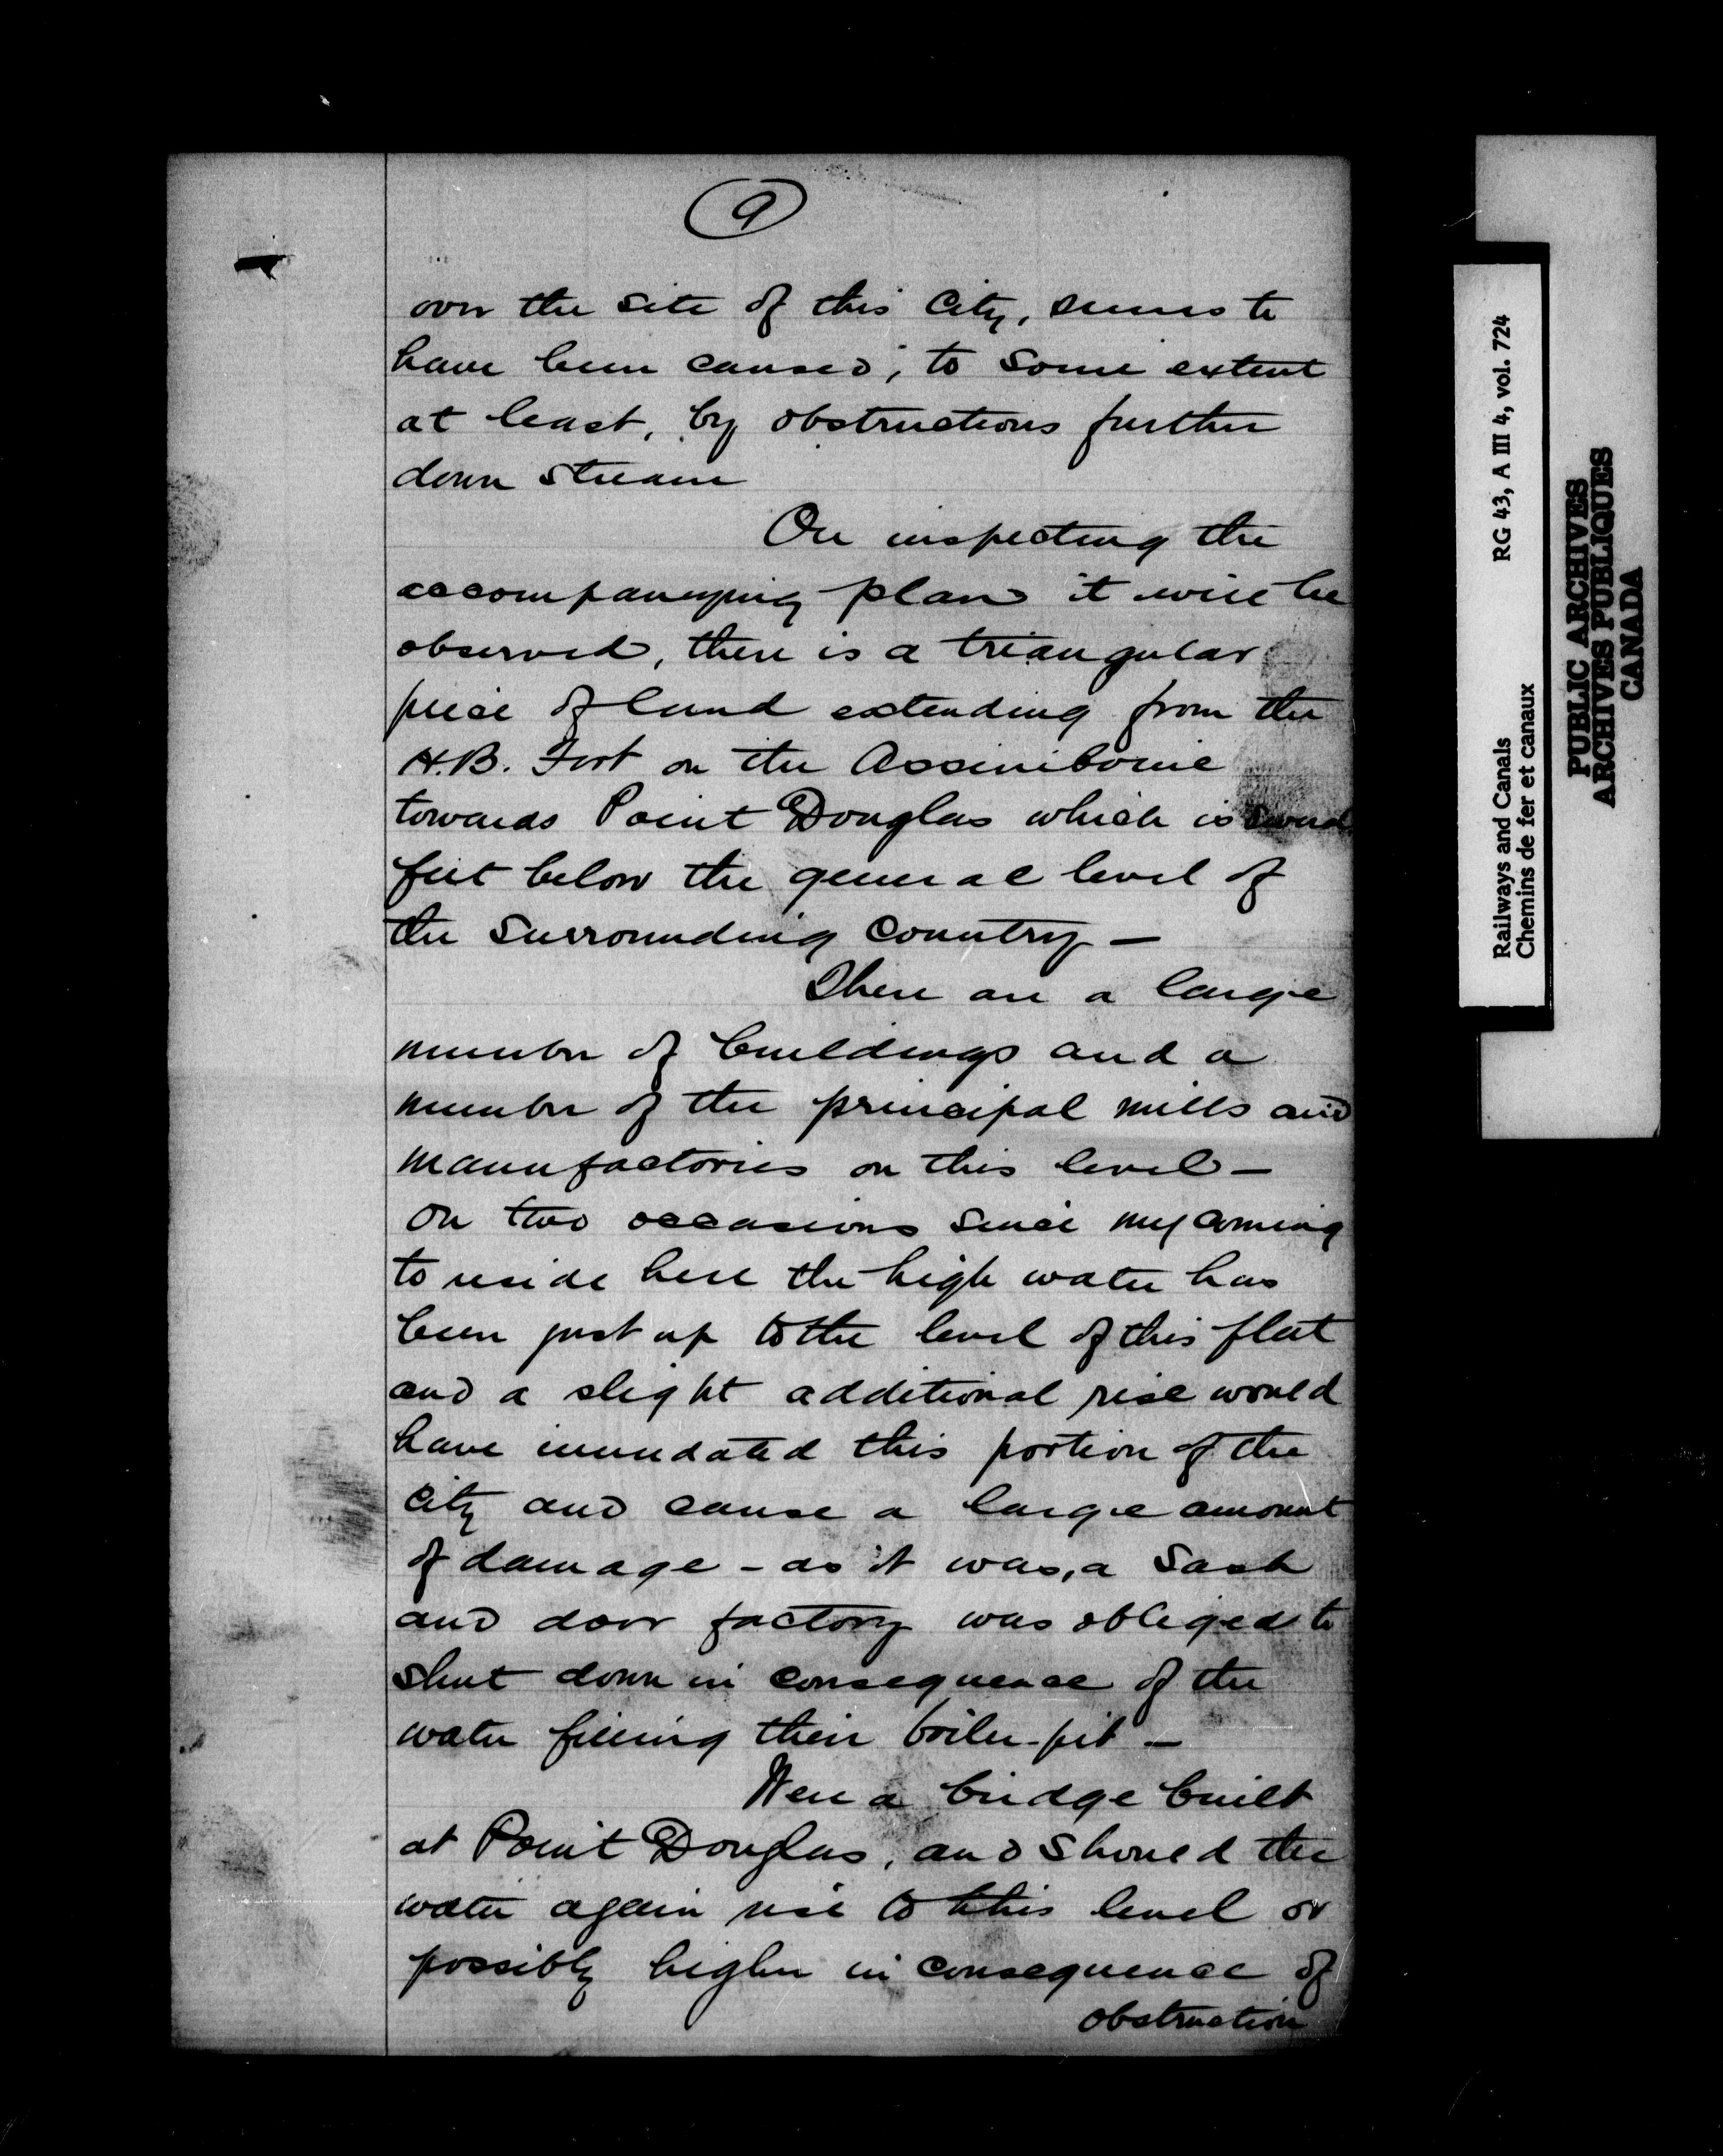 9
over the site of this City, seems to
have been caused, to some extent
at least, by obstructions further
down stream
On inspecting the
accompanying plan it will be
observed, there is a triangular
piece of land extending from the
H.B. Fort on the Assiniboine
towards Point Douglas which is several
feet below the general level of
the surrounding country —
There are a large
number of buildings and a
number of the principal mills and
manufactories on this level —
On two occasions since my coming
to reside here the high water has
been just up to the level of this flat
and a slight additional rise would
have inundated this portion of the
city and cause a large amount
of damage - as it was, a sash
and door factory was obliged to
shut down in consequence of the
water filling their boiler-pit —
Were a bridge built
at Point Douglas, and should the
water again rise to this level or
possibly higher in consequence of
obstruction
Railways and Canals RG 43, A III 4, vol. 724
Chemins de fer et canaux
PUBLIC ARCHIVES
ARCHIVES PUBLIQUES
CANADA